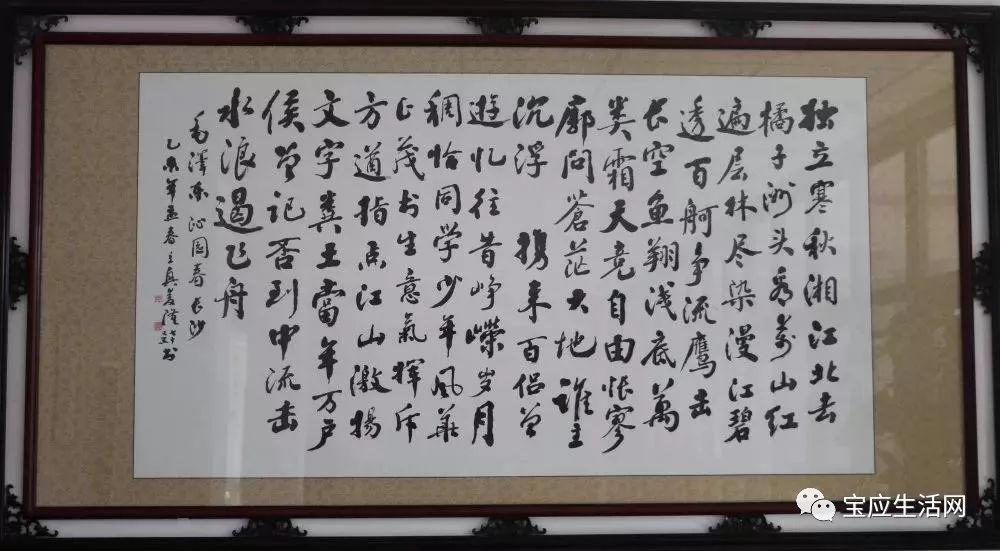 独立寒秋湘江北去
橘子洲头看万山红
遍层林尽染漫江碧
透百舸争流鹰击
长空鱼翔浅底萬
类霜天竞自由怅寥
廓问蒼茫大地谁主
沉浮 携来百侣曾
遊忆往昔峥嶸岁月
稠恰同学少年风华
正茂书生意氣挥斥
方遒指点江山激扬
文字粪土當年万户
侯曾记否到中流击
水浪遏飞舟
毛泽东沁园春长沙
年孟春王真书
宝应生活网